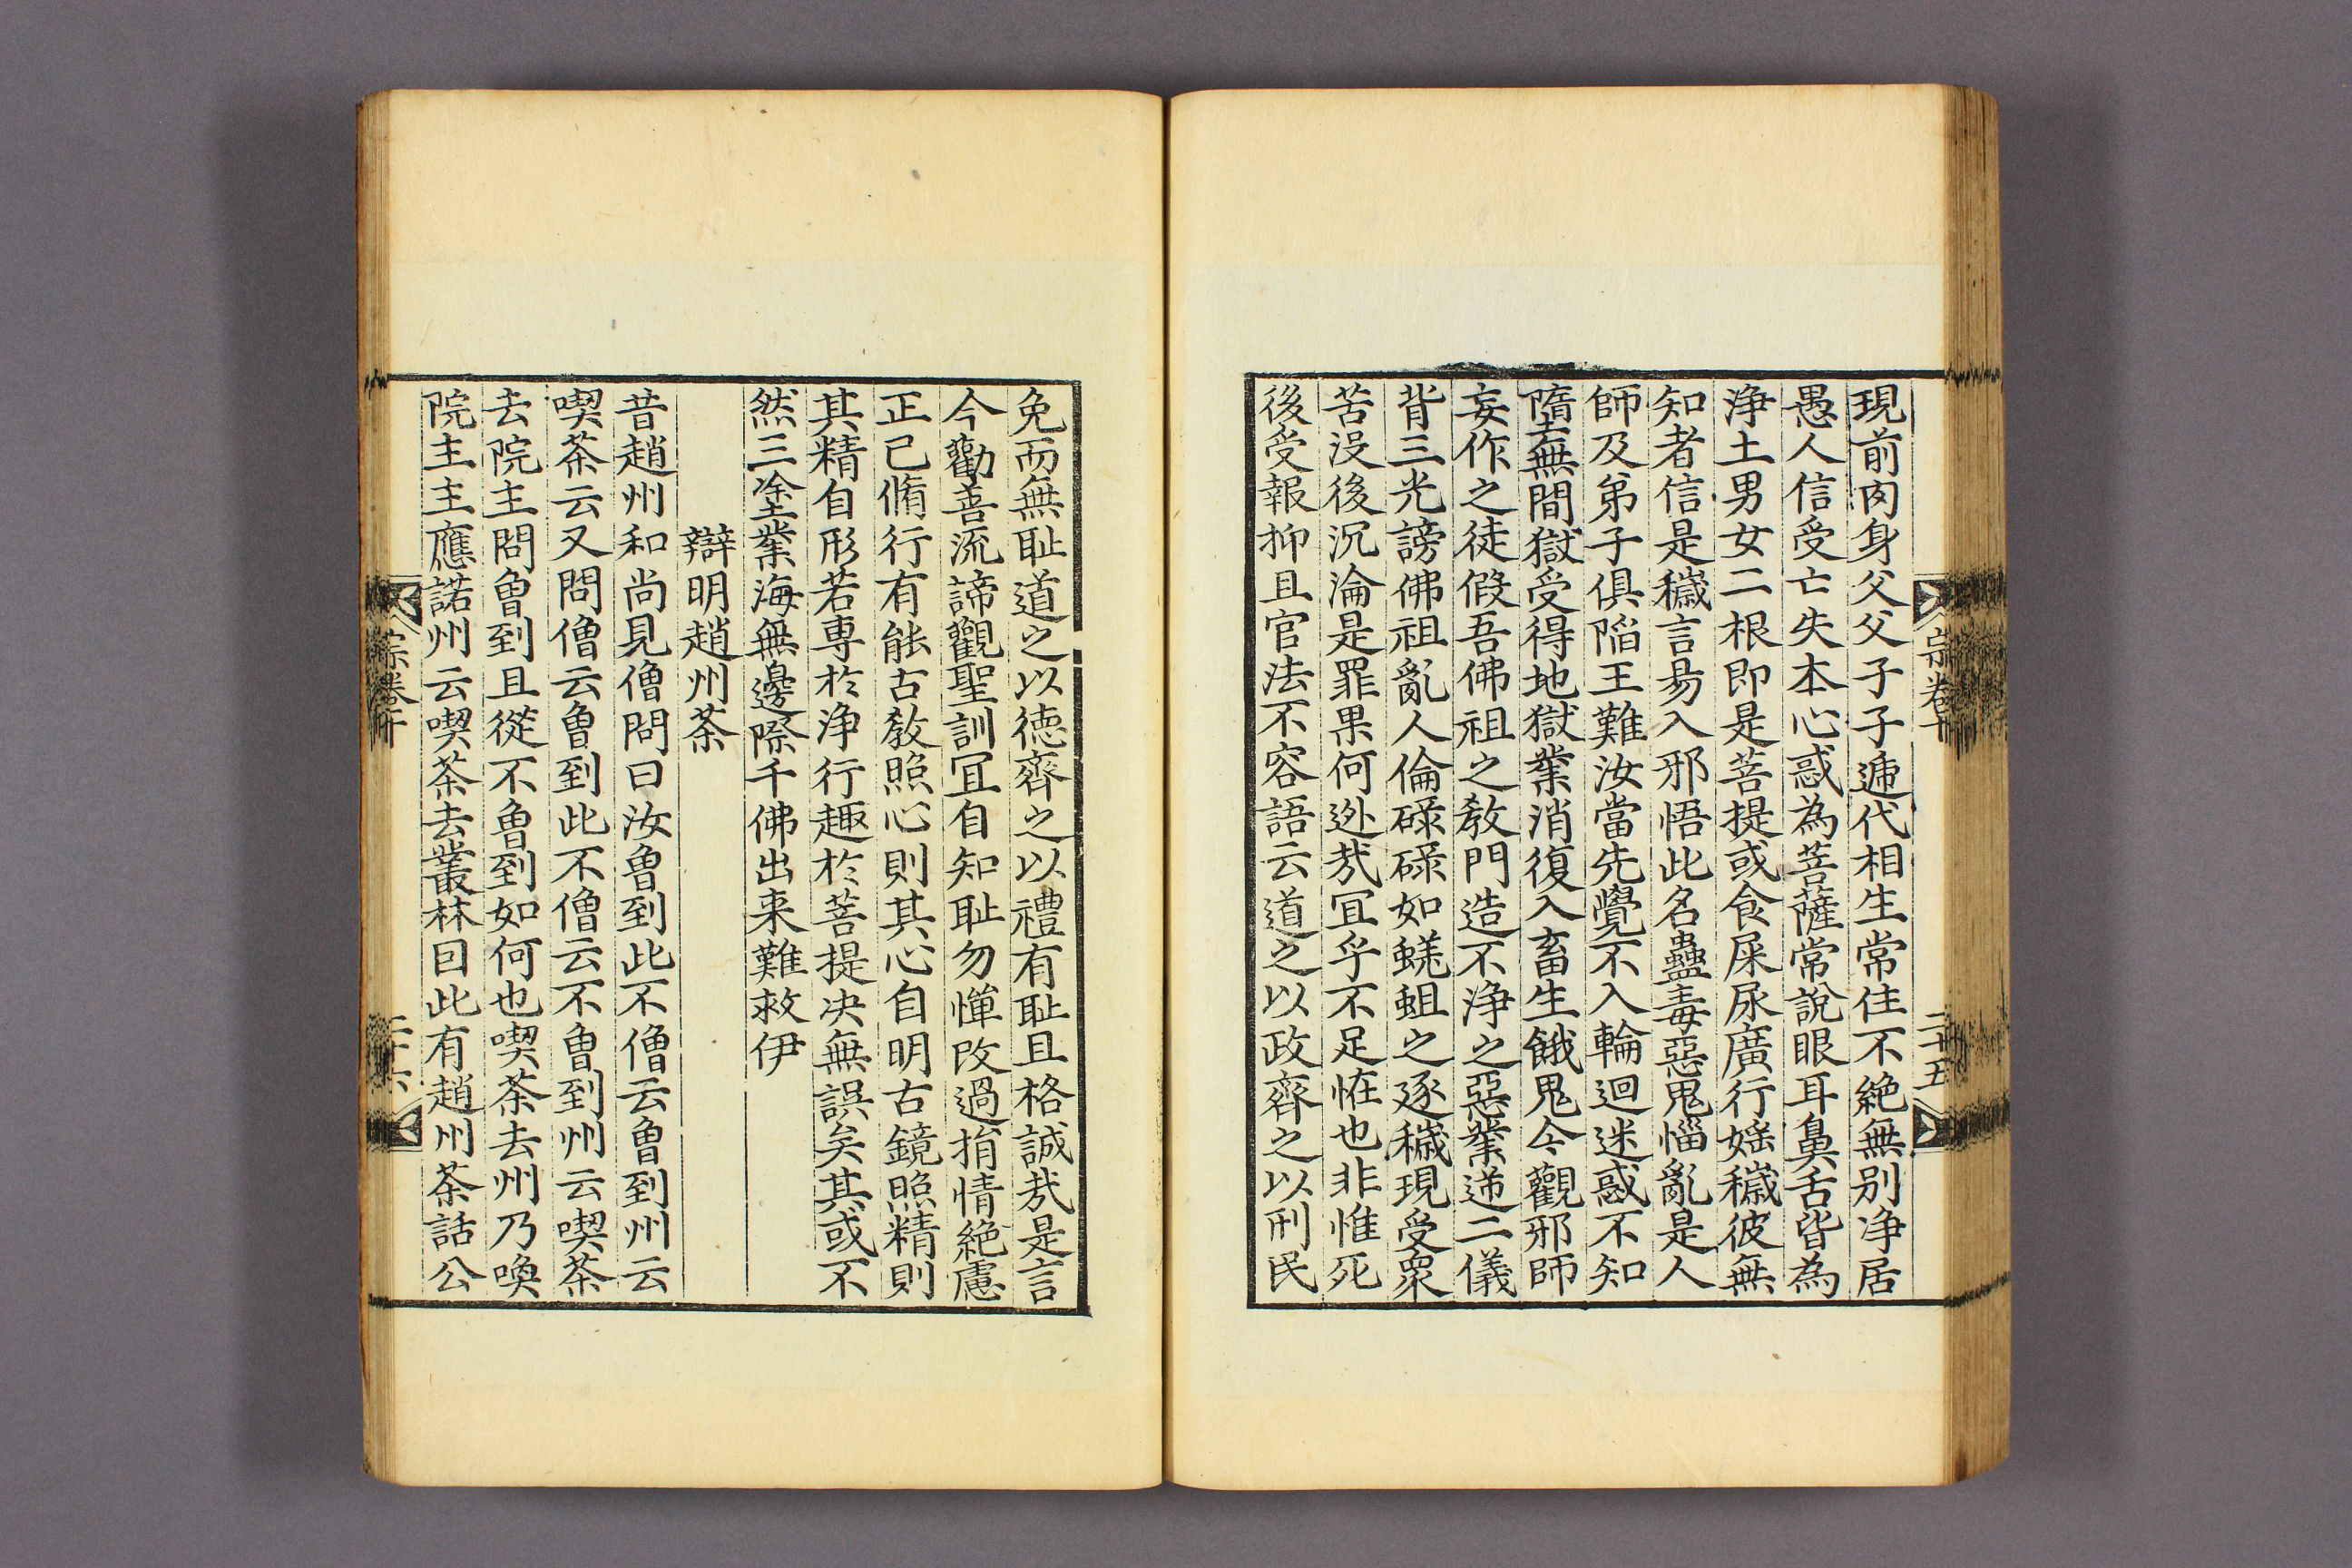 現前肉身父父子子遞代相生常住不絶無别净居
愚人信受亡失本心惑為菩薩常說眼耳鼻舌皆為
浄土男女二根即是菩提或食屎尿廣行婬穢彼無
知者信是穢言昜入邪悟此名蠱毒惡鬼惱亂是人
師及弟子俱陷王難汝當先覺不入輪迴迷惑不知
墮無間獄受得地獄業消復入畜生餓鬼今觀邪師
妄作之徒假吾佛祖之教門造不浄之惡業逆二儀
背三光謗佛祖亂人倫碌碌如蜣蛆之逐穢現受衆
苦没後沉淪是罪果何逃㢤冝乎不足恠也非惟死
後受報抑且官法不容語云道之以政齊之以刑民
免而無耻道之以德齊之以禮有耻且格誠㢤是言
今勸善流諦觀聖訓冝自知耻勿憚改過捐情絶慮
正己脩行有能古教照心則其心自明古鏡照精則
其精自形若専於浄行趣於菩提决無誤矣其或不
然三塗業海無邊際千佛出来難救伊
辯明趙州茶
昔趙州和尚見僧問曰汝曾到此不僧云曾到州云
喫茶云又問僧云曾到此不僧云不曾到州云喫茶
去院主問曾到且從不曾到如何也喫茶去州乃喚
院主主應諾州云喫茶去叢林因此有趙州茶話公
宗卷十
二十五
宗卷十
二十六